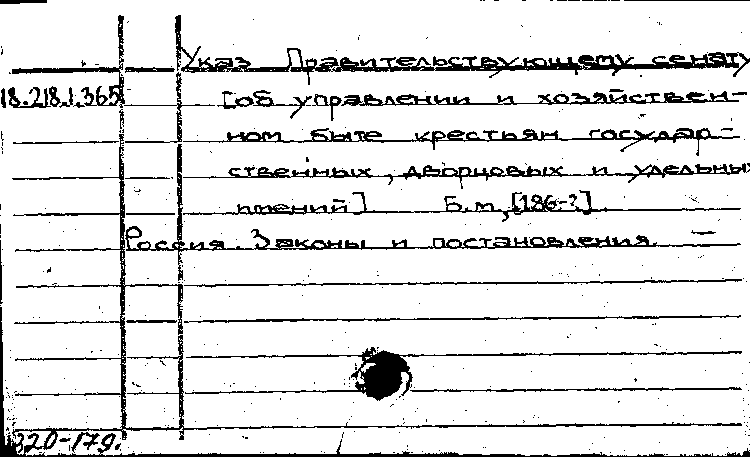 Указ Правительствующему сенату
18.218.1.365 [об управлении и хозяйствен-
ном быте крестьян государ-
ственных, дворцовых и удельных
имений] Б.м., [186-?]
Россия. Законы и постановления. —
320-179.